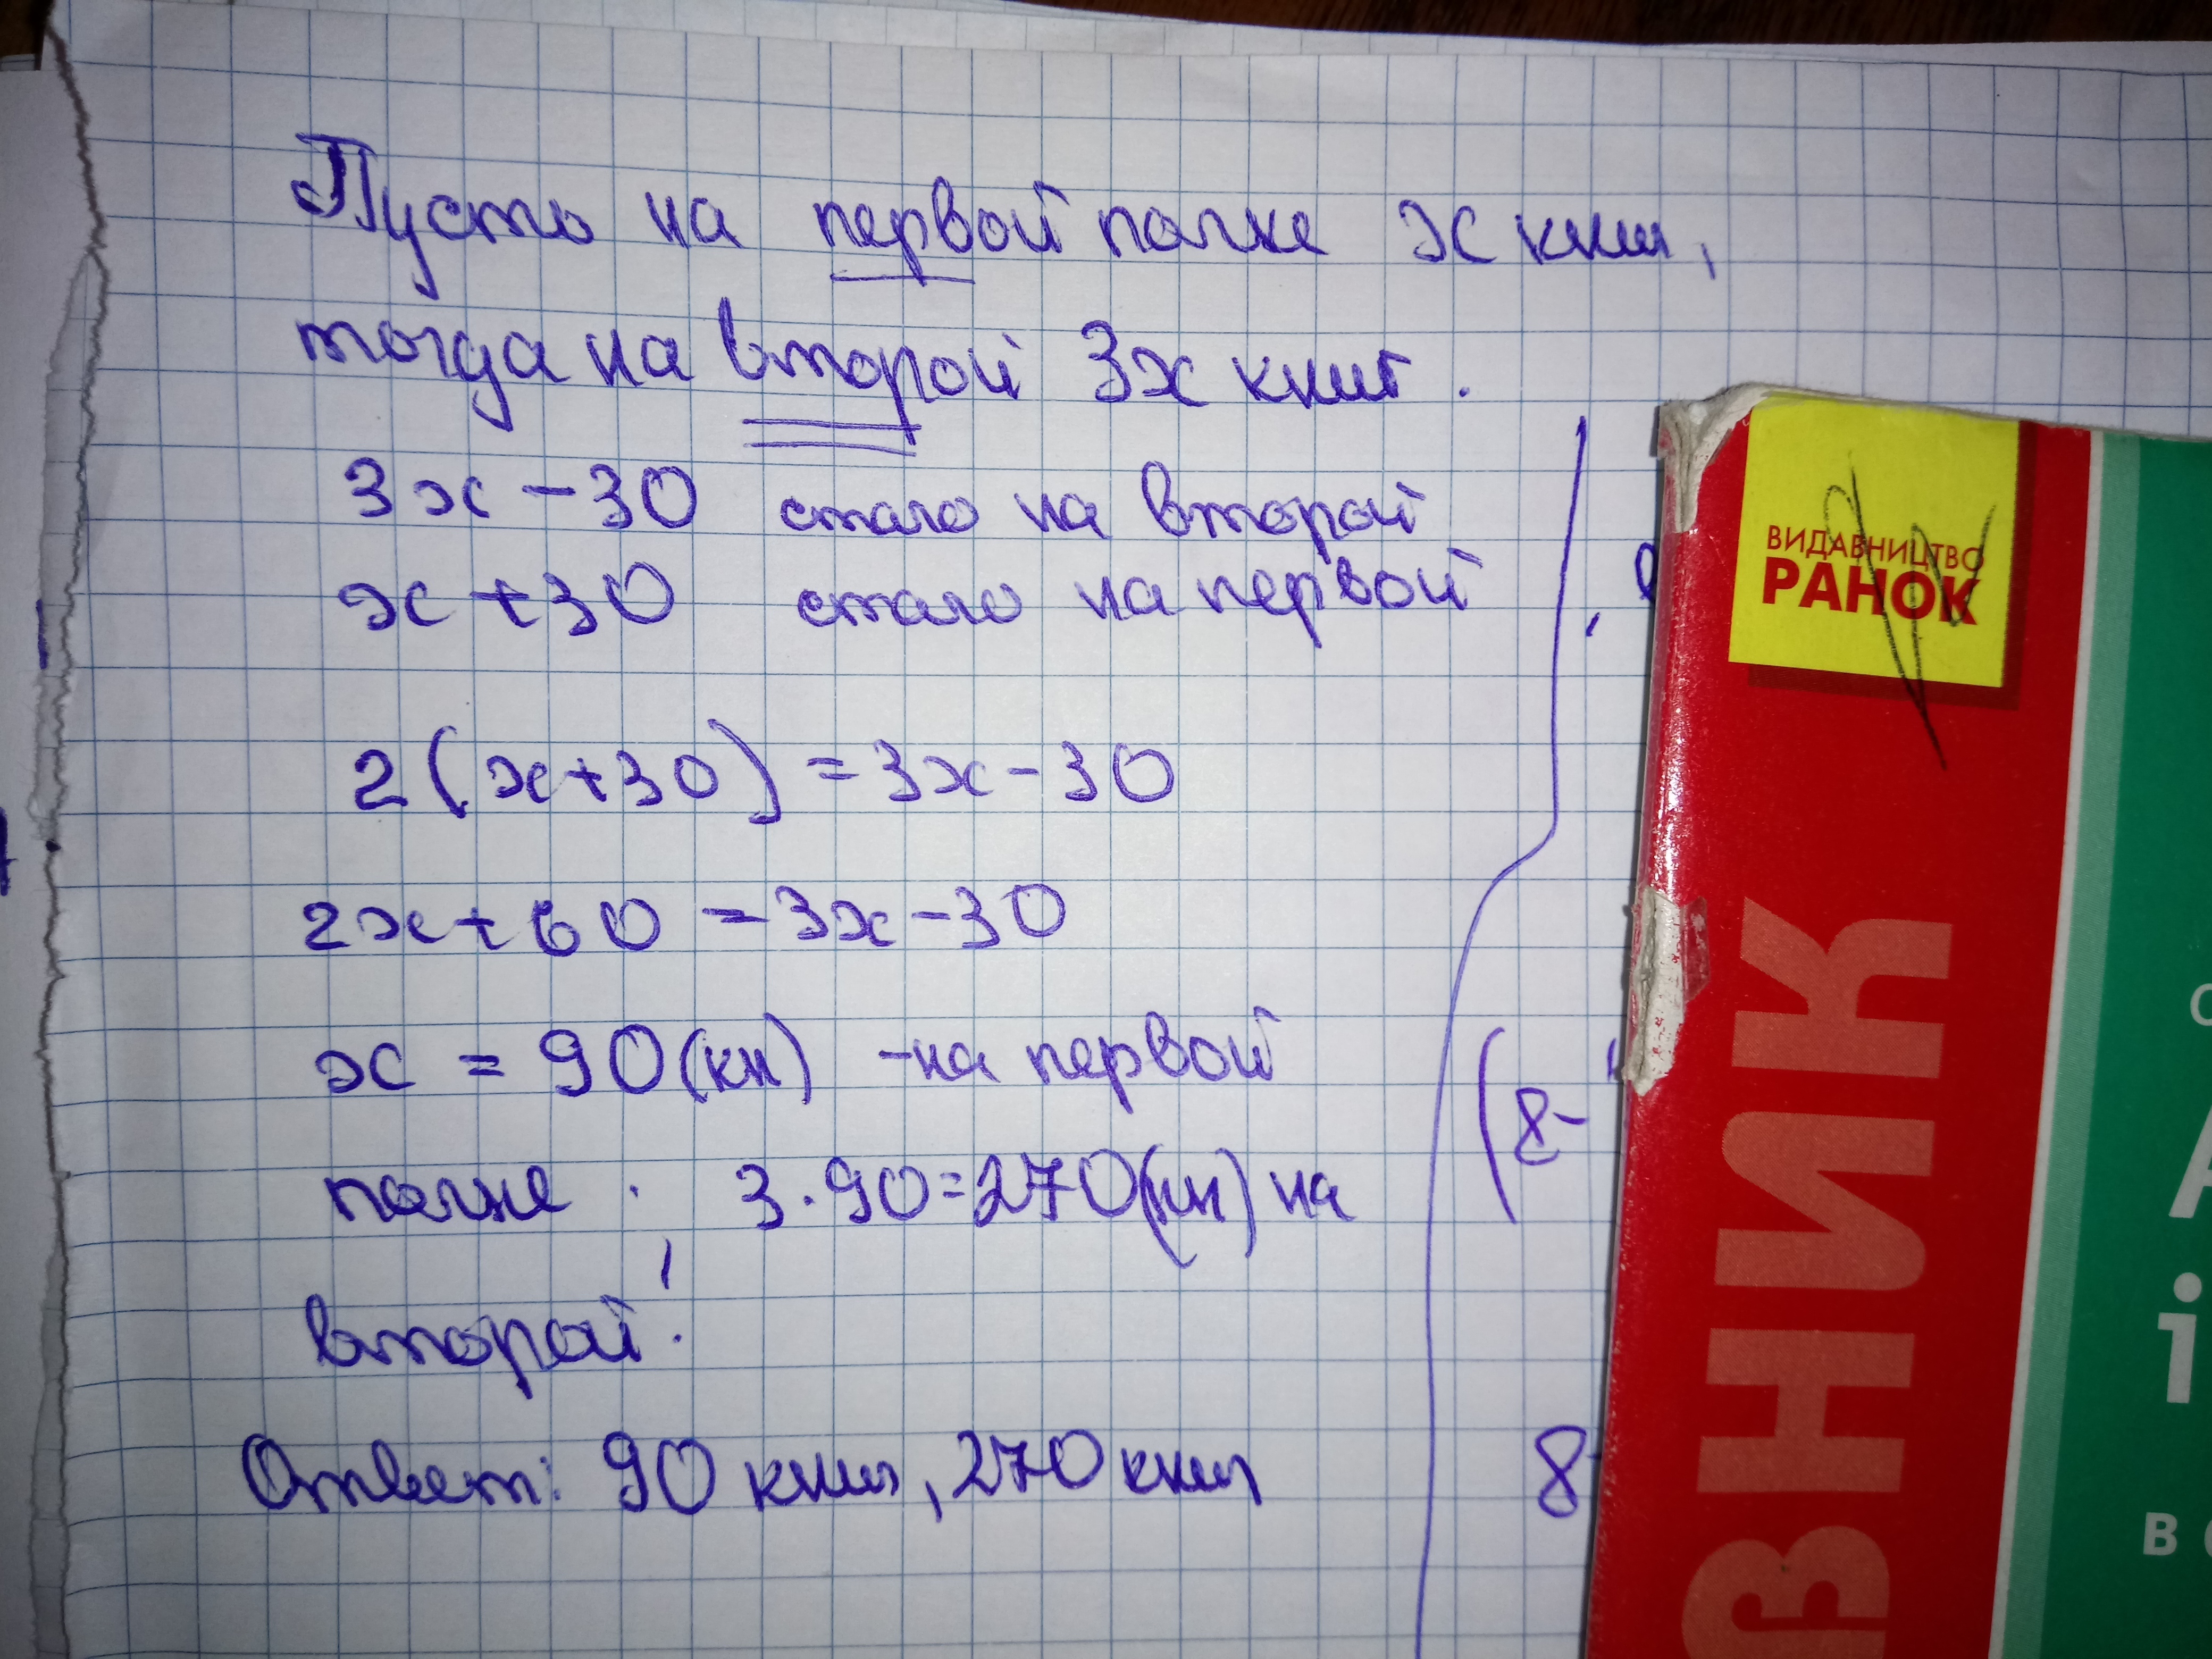 Пусть на первой полке x книг,
тогда на второй 3x книг.
3x - 30 стало на второй
x + 30 стало на первой
2(x+30) = 3x - 30
2x + 60 = 3x - 30
x = 90 (кн) - на первой
полке; 3·90 = 270 (кн) на
второй.
Ответ: 90 книг, 270 книг
(8-
8-
ВИДАВНИЦТВО
РАНОК
ВНИК